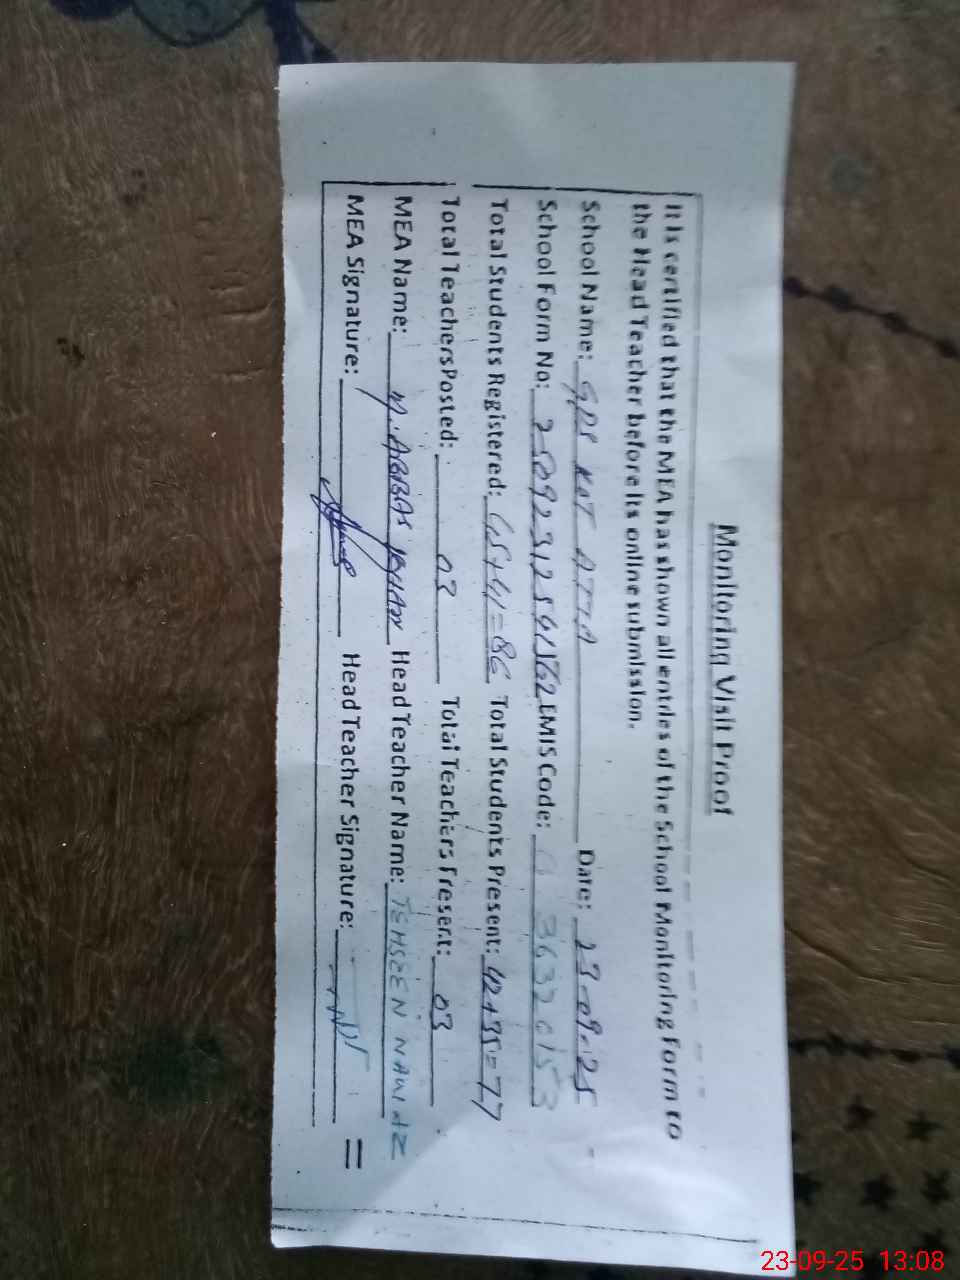 Monitoring Visit Proof
It is certified that the MEA has shown all entries of the School Monitoring Form to
the Head Teacher before its online submission.
School Name: GPS KOT ATTA Date: 23-09-25
School Form No: 2509231254162 EMIS Code: 36320153
Total Students Registered: 45+41=86 Total Students Present: 42+35=77
Total Teachers Posted: 03 Total Teachers Present: 03
MEA Name: M. ABBAS Head Teacher Name: TEHSEEN NAWAZ
MEA Signature: Head Teacher Signature:
23-09-25 13:08